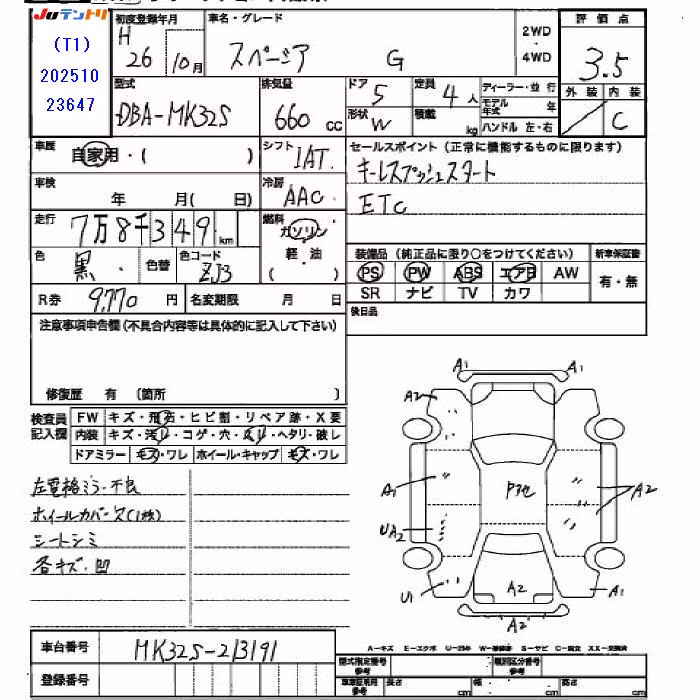 Juテントリ
(T1)
202510
23647
初度登録年月
H
26 10月
車名・グレード
スペーシア G
2WD
・
4WD
評価点
3.5
外装 内装
C
型式
DBA-MK32S
排気量
660 cc
ドア
5
形状
W
定員
4 人
積載
kg
ディーラー・並行
モデル年式 年
ハンドル 左・右
車歴
自家用・( )
シフト
IAT
セールスポイント (正常に機能するものに限ります)
キーレスプッシュスタート
ETC
車検
年 月( 日)
冷房
AAC
走行
7万8千349 km
燃料
ガソリン
・
軽油
( )
色
黒
色替
色コード
ZJ3
装備品 (純正品に限り○をつけてください)
PS PW ABS エアB AW
SR ナビ TV カワ
新車保証書
有・無
R券 9,770 円 名変期限 月 日
後日品
注意事項申告欄(不具合内容等は具体的に記入して下さい)
修復歴 有 〔箇所 〕
検査員
記入欄
FW キズ・飛石・ヒビ割・リペア跡・X要
内装 キズ・汚レ・コゲ・穴・スレ・ヘタリ・破レ
ドアミラー キズ・ワレ ホイール・キャップ キズ・ワレ
左電格ミラー不良
ホイールカバー欠(1枚)
シートシミ
各キズ・凹
A1
A2
A1
A1
UA2
U1
P3セ
A2
A2
A1
A2
A-キズ E-エクボ U-凹み W-補修跡 S-サビ C-腐食 XX-交換済
車台番号 MK32S-213191
登録番号
型式指定番号
参考
類別区分番号
参考
車庫証明用
参考
長さ cm 幅 cm 高さ cm